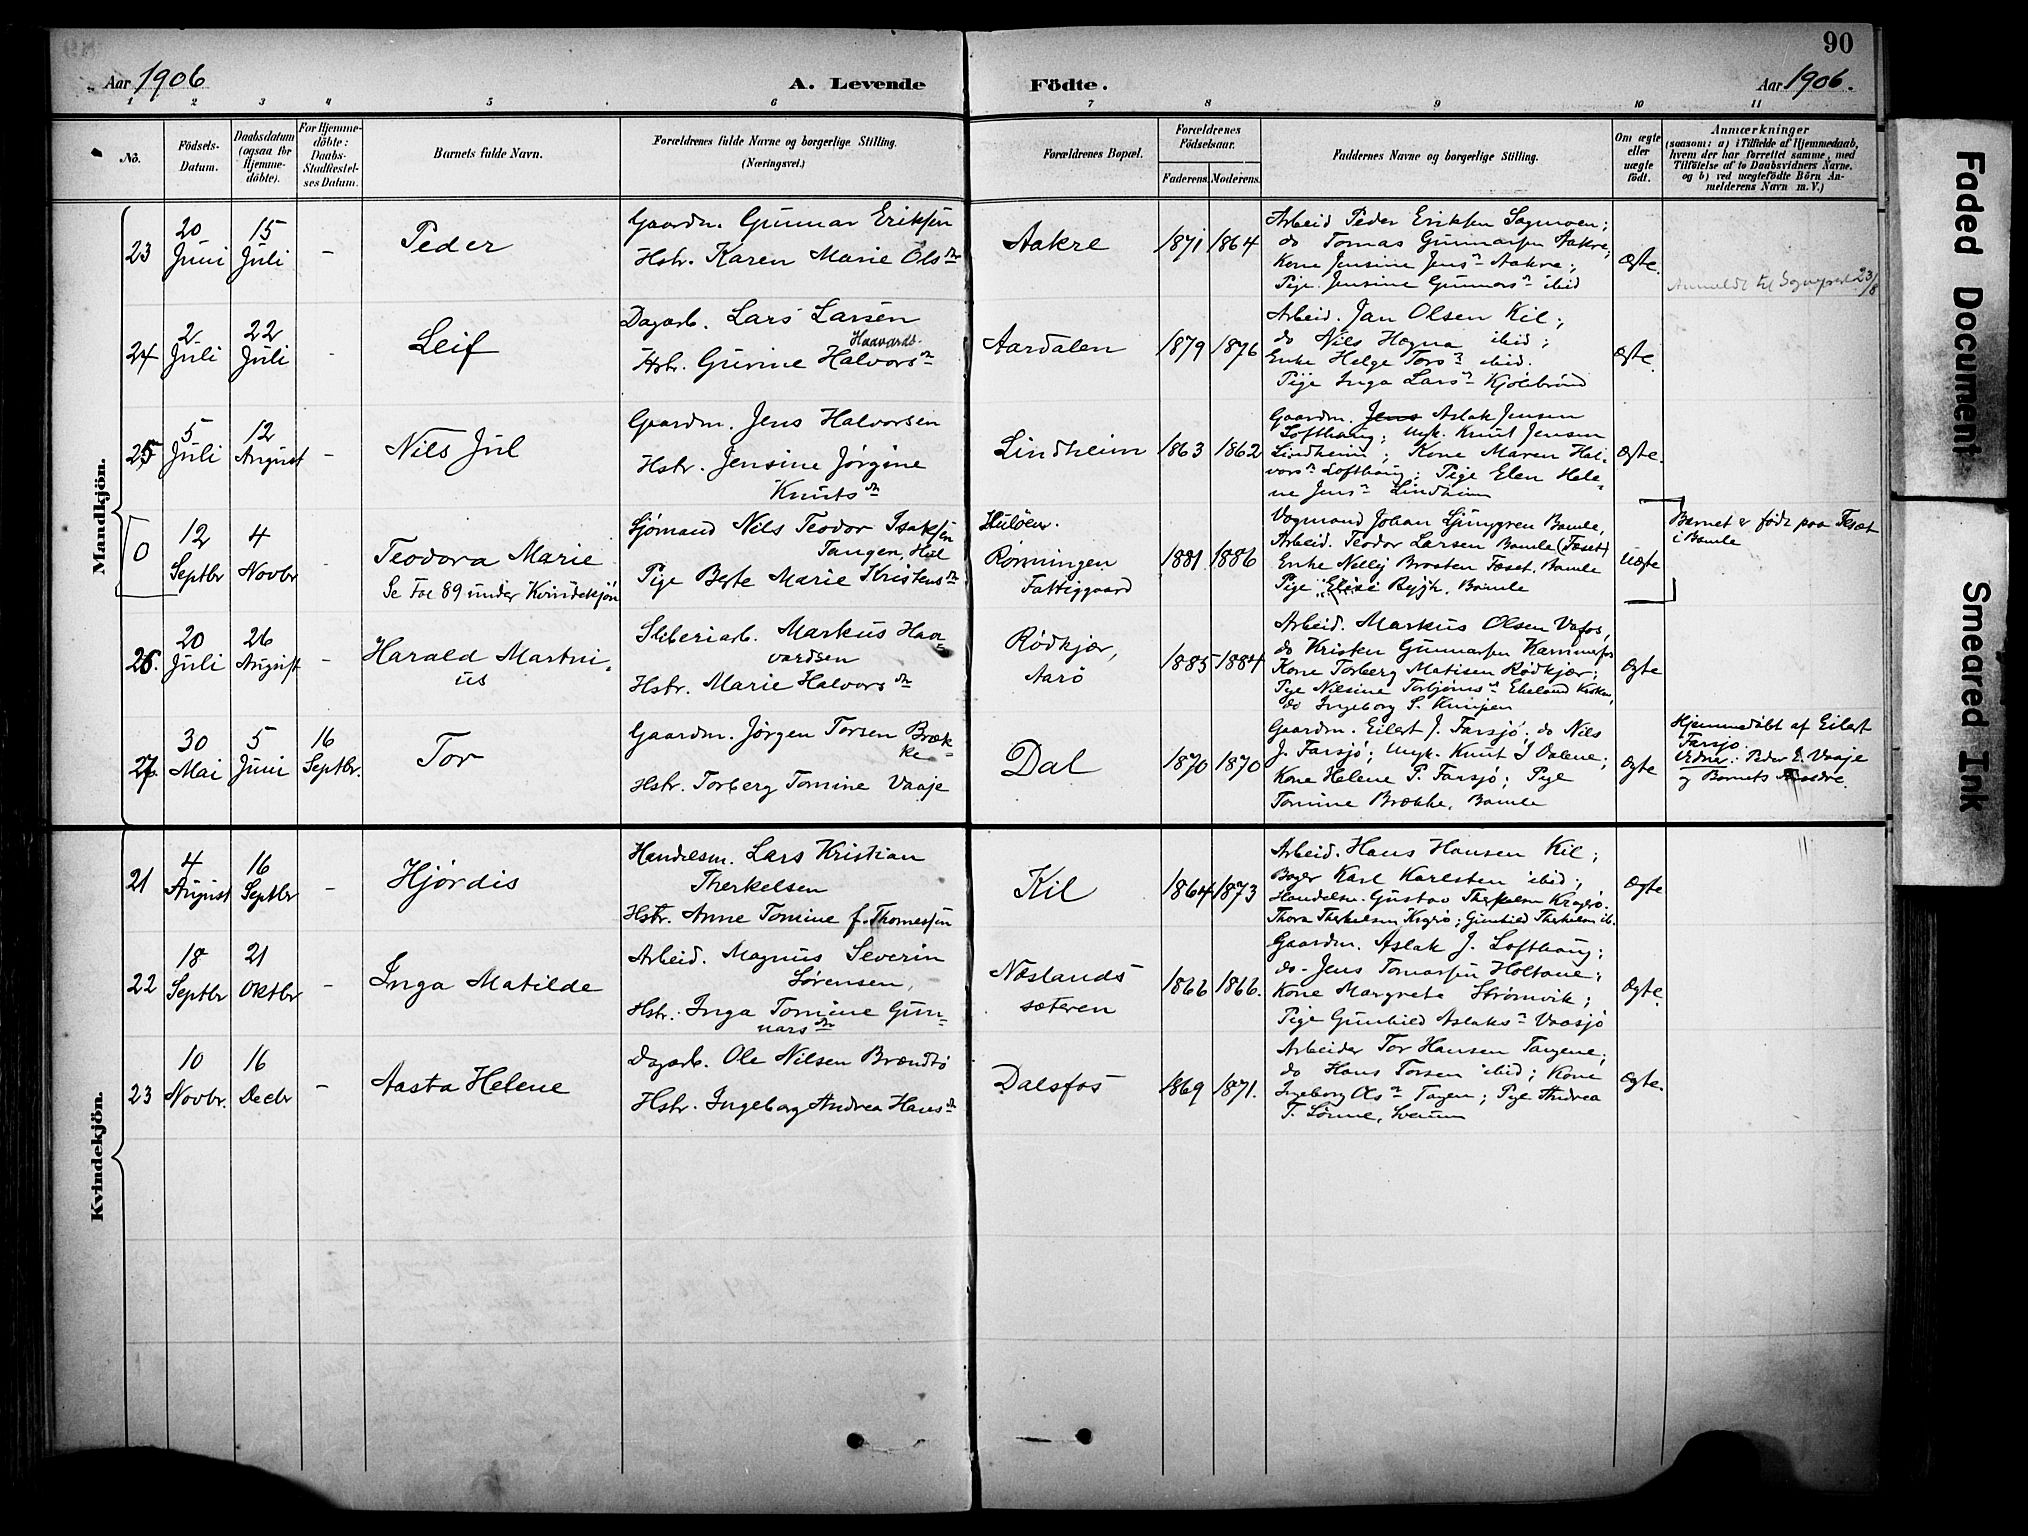 90
Aar 1906
A. Levende
Födte.
Aar 1906.
1 2 3 4 5 6 7 8 9 10 11
No.
Födsels-
Datum.
Daabsdatum
(ogsaa for
Hjemme-
döbte).
For Hjemme-
döbte:
Daabs-
Stadfæstel-
ses Datum.
Barnets fulde Navn.
Forældrenes fulde Navne og borgerlige Stilling.
(Næringsvei.)
Forældrenes Bopæl.
Forældrenes
Födselsaar.
Faderens.
Moderens.
Faddernes Navne og borgerlige Stilling.
Om ægte
eller
uægte
födt.
Anmærkninger
(saasom: a) i Tilfælde af Hjemmedaab,
hvem der har forrettet samme, med
Tilföielse af to Daabsvidners Navne.
og b) ved uægtefödte Börn An-
melderens Navn m. V.)
Mandkjön.
23
20
Juni
15
Juli
-
Peder
Gaardm. Gunnar Eriksen
Hstr. Karen Marie Olsdr
Aakre
1871
1864
Arbeid Peder Eriksen Sagmoen;
do Tomas Gunnarsen Aakre,
Kone Jensine Jensn Aakre;
Pige Jensine Gunnarsn ibid
Ægte.
Anmeldt til Sognepræst 23/8
24
2
Juli
22
Juli
-
Leif
Dagarb. Lars Larsen
Haavards.
Hstr. Gurine Halvorsn
Aardalen
1879
1876
Arbeid. Jan Olsen Kil;
do Nils Hogna ibid;
Enke Helge Torsn ibid.
Pige Inga Larsn Kjölebrönd
Ægte.
25
5
Juli
12
August
-
Nils Jul
Gaardm. Jens Halvorsen
Hstr. Jensine Jørgine
Knutsdr
Lindheim
1863
1862
Gaardm. Jens Aslak Jensen
Lofthaug; Ungk. Knut Jensen
Lindheim; Kone Maren Hal-
vorsn Lofthaug; Pige Elen Hele-
ne Jensn Lindheim
Ægte.
0
12
Septbr
4
Novbr
-
Teodora Marie
Se Fol 89 under Kvindekjön
Sjömand Nils Teodor Isaksen
Tangen, Hul
Pige Berte Marie Kristensdr
Hulöen.
Rønningen
Fattiggaard
1881
1886
Vognmand Johan Ljunggren Bamle,
Arbeid. Teodor Larsen Bamle (Fæset)
Enke Nelly Brosten Fæset. Bamle
Pige Elise Rygh. Bamle
Uægte
Barnet er født paa Fæset
i Bamle
26.
20
Juli
26
August
-
Harald Martni-
us
Sliberiarb. Markus Haa-
vardsen
Hstr. Marie Halvorsdr
Rødkjær,
Aarø
1885
1884
Arbeid. Markus Olsen Vafos,
do Kristen Gunnarsen Kammerfos
Kone Torberg Matisen Rødkjær;
Pige Nilsine Torbjörnsn Ekeland
do Ingeborg S. Knipen
Ægte
27.
30
Mai
5
Juni
16
Septbr.
Tor
Gaardm. Jørgen Torsen Bræk-
ke
Hstr. Torberg Tomine Vaaje
Dal
1870
1870
Gaardm. Eilert J. Farsjø; do Nils
J. Farsjø; Ungk. Knut J Dalene;
Kone Helene P. Farsjø; Pige
Tomine Brække, Bamle
Ægte
Hjemmedöbt af Eilert
Farsjø.
Vidner: Peder E. Vaaje
og Barnets Modre.
Kvindekjön.
21
4
August
16
Septbr
-
Hjørdis
Handelsm. Lars Kristian
Therkelsen
Hstr. Anne Tomine f. Thomessen
Kil
1864
1873
Arbeid. Hans Hansen Kil;
Bager Karl Karlsten ibid;
Handelsm. Gustav Therkelsen Kragerø.
Thora Therkelsen Kragerø; Gunhild Therkelsen ib.
Ægte
22
18
Septbr
21
Oktbr
-
Inga Matilde
Arbeid. Magnus Severin
Sørensen,
Hstr. Inga Tomine Gun-
narsdr
Næslands
sæteren
1866
1866.
Gaardm. Aslak J. Lofthaug;
do. Jens Tomassen Holtane;
Kone Margrete Strömvik;
Pige Gunhild Aslaksn Vaasjö
Ægte.
23
10
Novbr.
16
Decbr
-
Aasta Helene
Dagarb. Ole Nilsen Brændtø
Hstr. Ingeborg Andrea Hansdr
Dalsfos
1869
1871.
Arbeider Tor Hansen Tangene;
do Hans Torsen ibid; Kone
Ingeborg Olsn Tangen; Pige Andrea
T. Sönne,
Ægte.
Faded Document
Smeared Ink